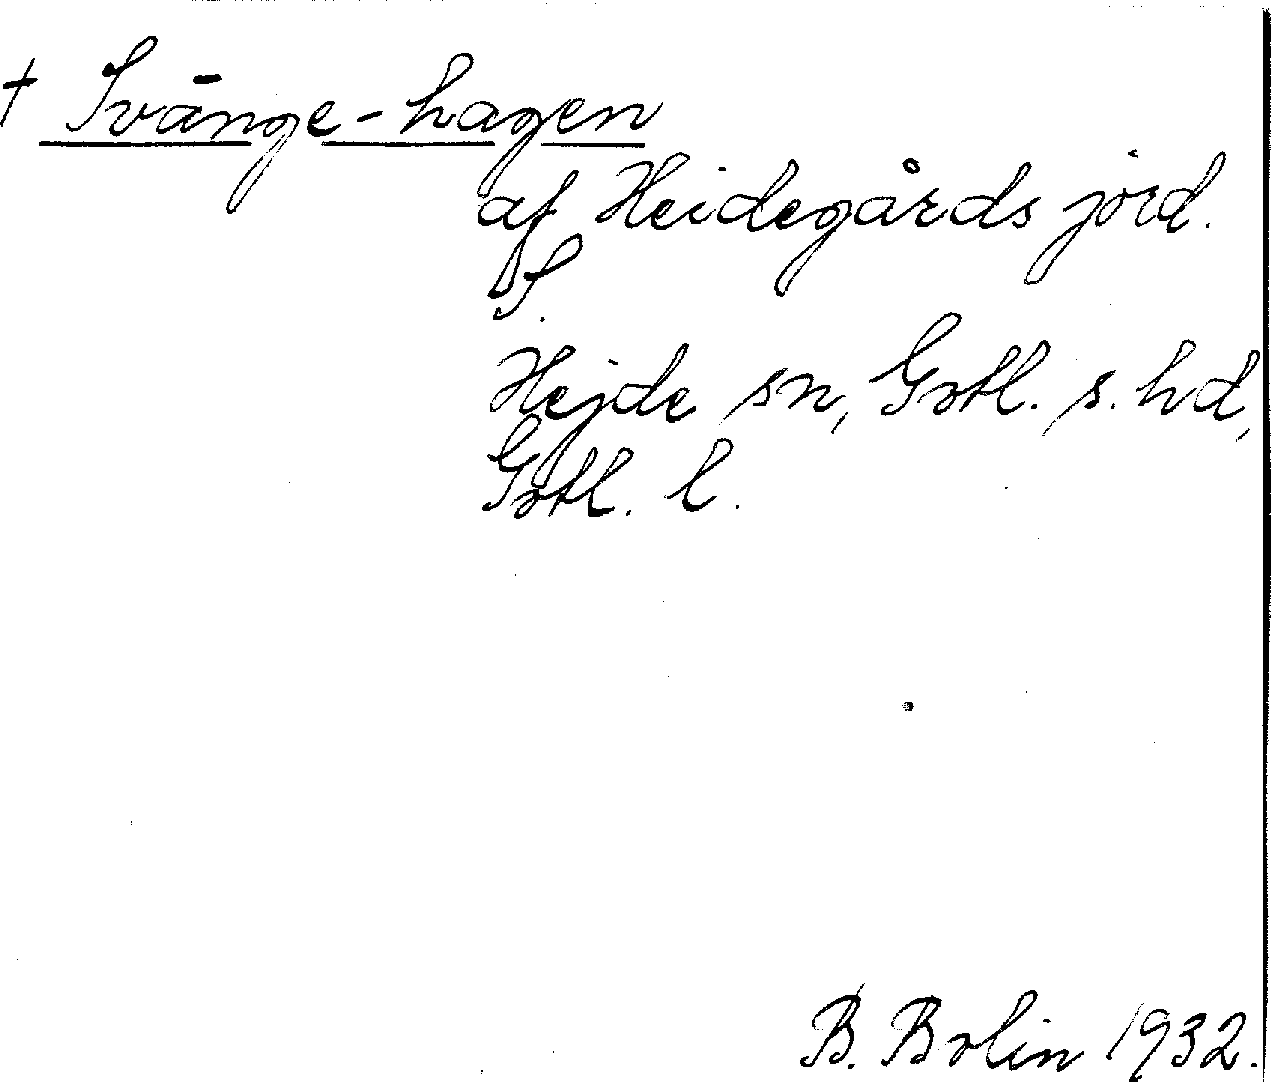 † Svänge-hagen
af Heidegårds jord.
S.
Hejde sn, Gotl. s. hd,
Gotl. l.
B. Bolin 1932.